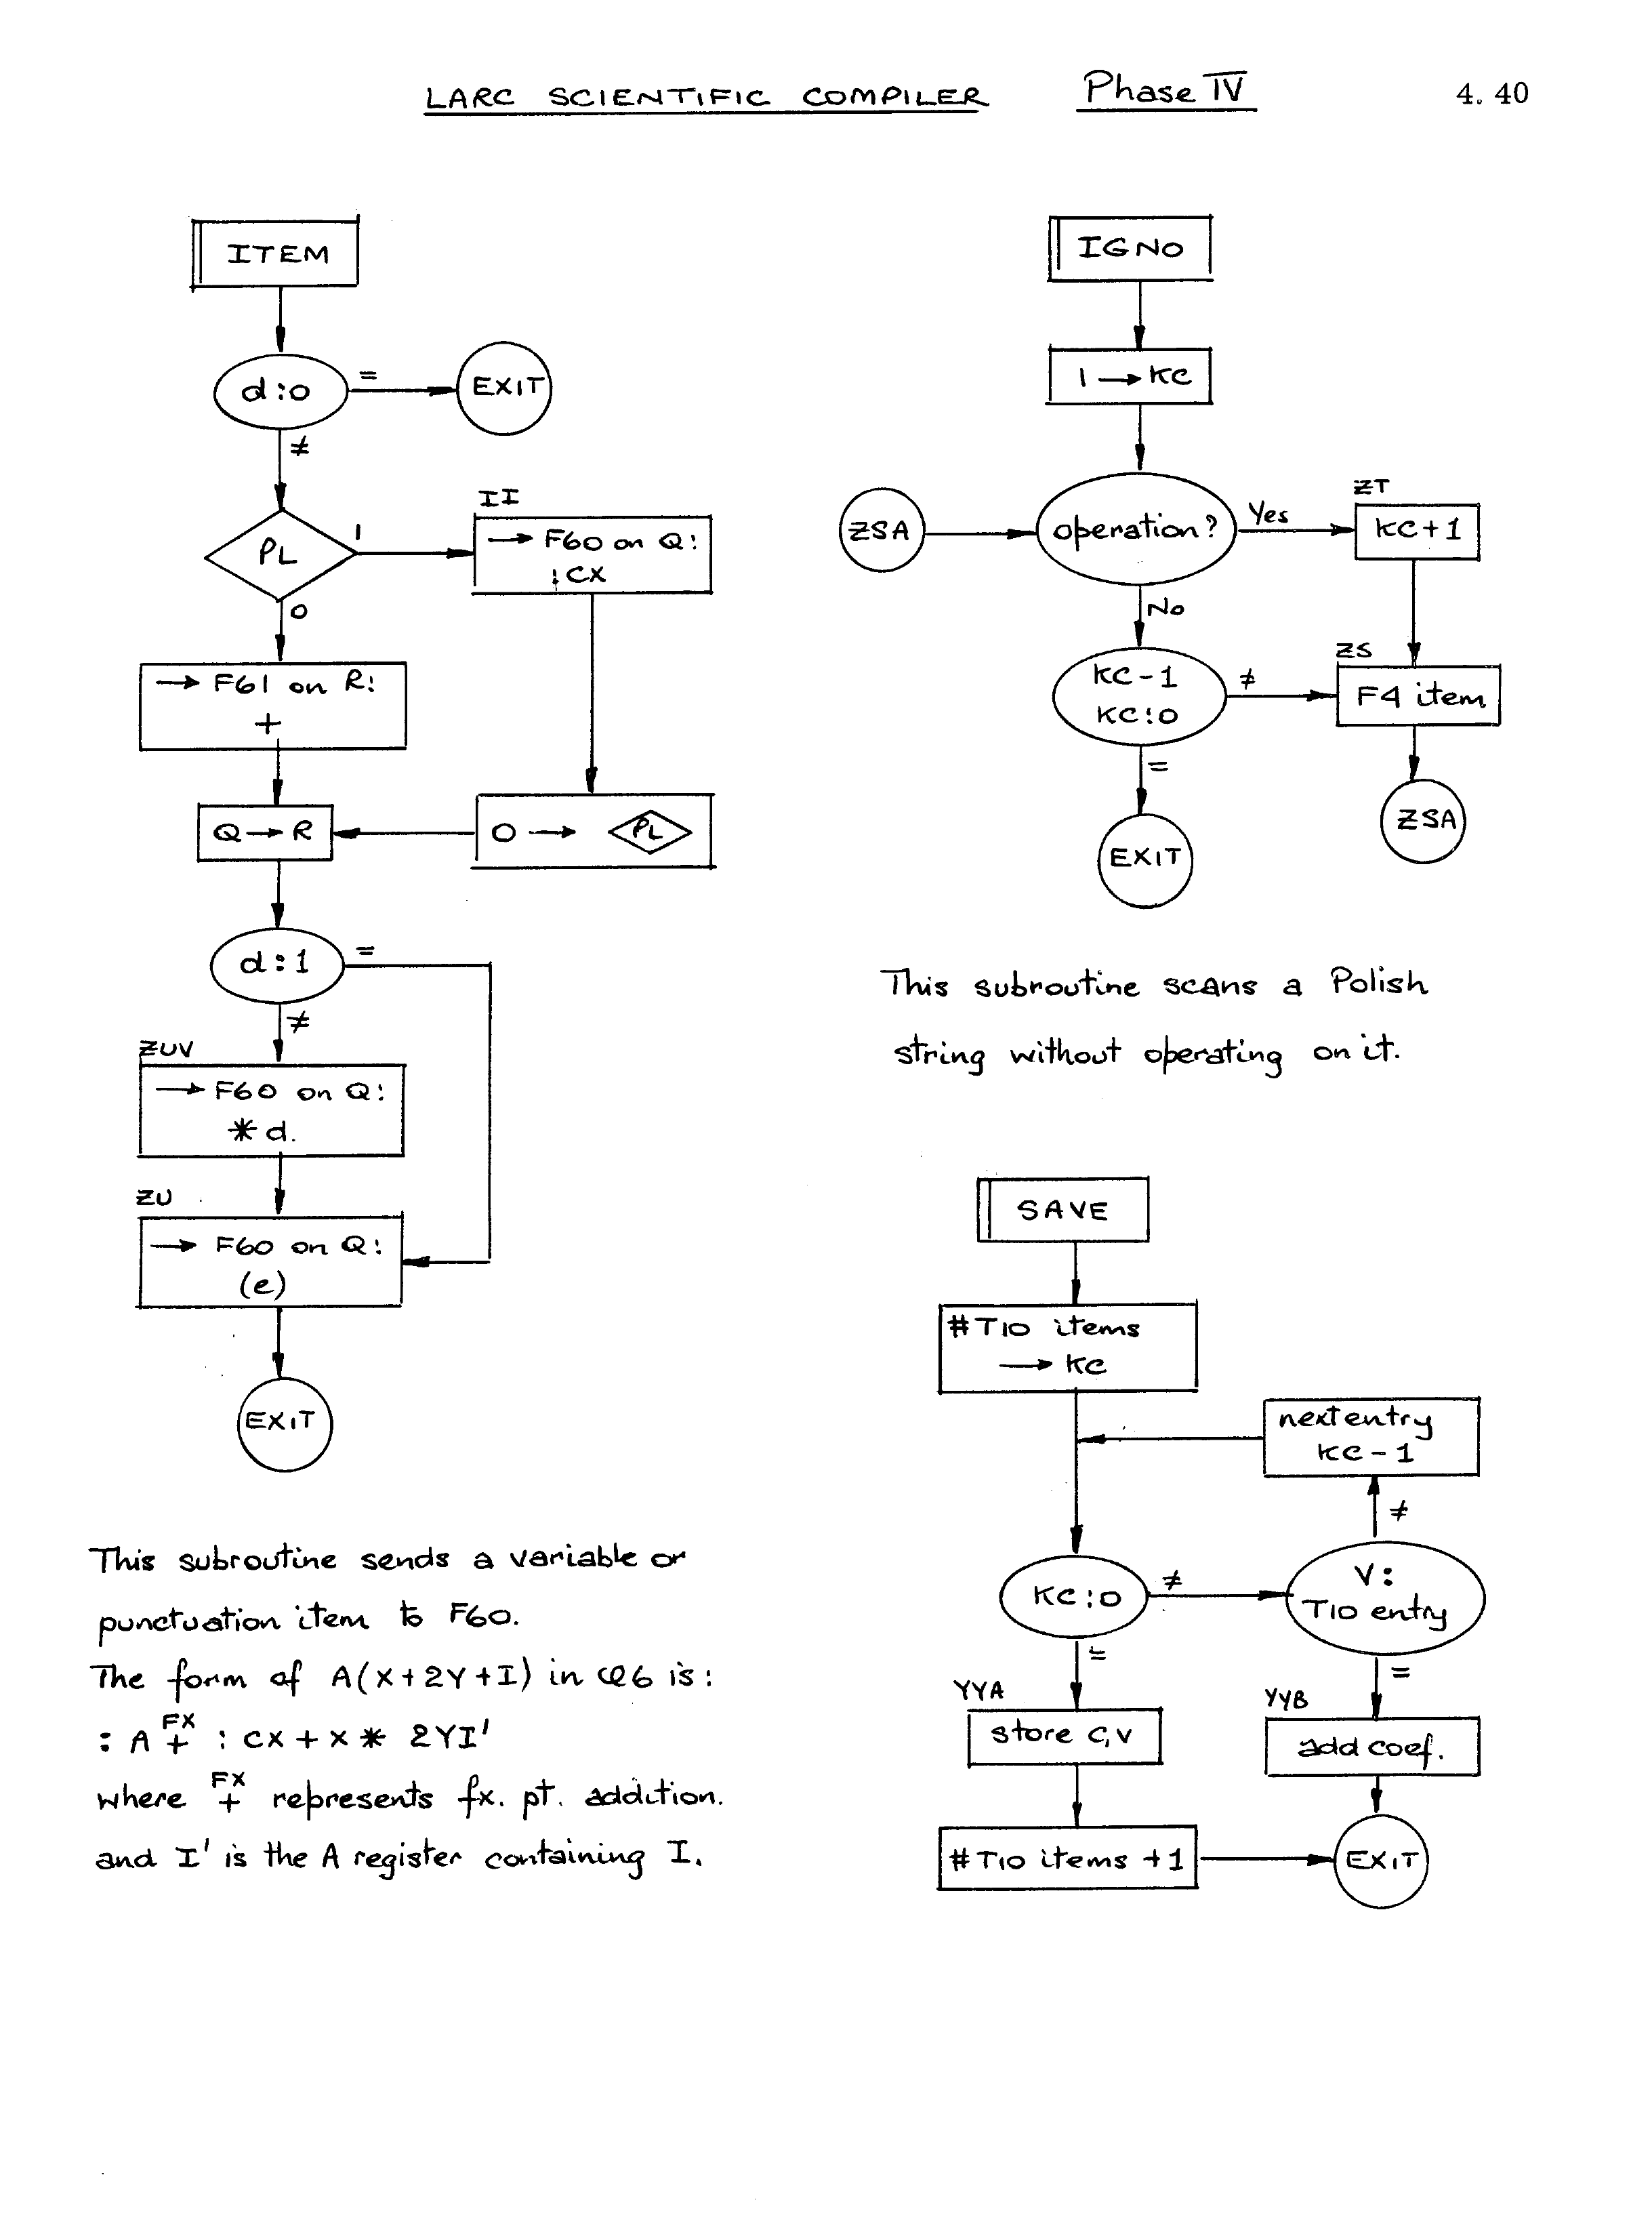 LARC SCIENTIFIC COMPILER Phase IV 4.40
ITEM
d:0
=
EXIT
≠
PL
1
II
→ F60 on Q:
:CX
0
→ F61 on R:
+
Q → R
0 → PL
d:1
=
≠
ZUV
→ F60 on Q:
* d.
ZU
→ F60 on Q:
(e)
EXIT
This subroutine sends a variable or
punctuation item to F60.
The form of A(X+2Y+I) in φ6 is:
: A FX+ : CX + X * 2YI'
where FX+ represents fx. pt. addition.
and I' is the A register containing I.
IGNO
1 → KC
ZSA
operation?
Yes
ZT
KC+1
No
KC-1
KC:0
≠
ZS
F4 item
=
EXIT
ZSA
This subroutine scans a Polish
string without operating on it.
SAVE
#T10 items
→ KC
next entry
KC-1
≠
KC:0
≠
V:
T10 entry
=
YYA
store C,V
=
YYB
add coef.
#T10 items +1
EXIT